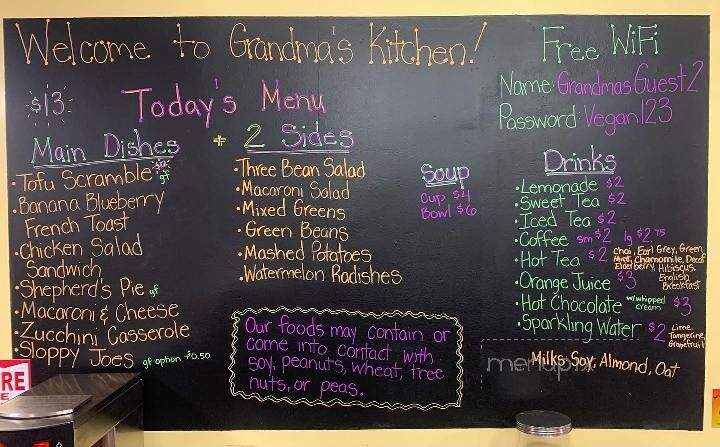 Welcome to Grandma's Kitchen!
$13
Today's Menu
Main Dishes
• Tofu Scramble gf
• Banana Blueberry
French Toast
• Chicken Salad
Sandwich
• Shepherd's Pie gf
• Macaroni & Cheese
• Zucchini Casserole
• Sloppy Joes gf option +0.50
+ 2 Sides
• Three Bean Salad
• Macaroni Salad
• Mixed Greens
• Green Beans
• Mashed Potatoes
• Watermelon Radishes
Our foods may contain or
come into contact with
soy, peanuts, wheat, tree
nuts, or peas.
Soup
Cup $4
Bowl $6
Free WiFi
Name: GrandmasGuest2
Password: Vegan123
Drinks
• Lemonade $2
• Sweet Tea $2
• Iced Tea $2
• Coffee sm $2 lg $2.75
• Hot Tea $2 Chai, Earl Grey, Green
Mint, Chamomile, Decaf
Elderberry, Hibiscus,
English
Breakfast
• Orange Juice $3
• Hot Chocolate w/whipped
cream $3
• Sparkling Water $2 Lime
Tangerine
Grapefruit
Milks: Soy, Almond, Oat
RE